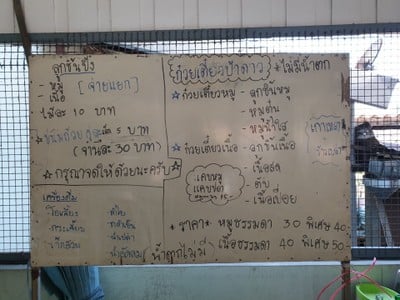 ลูกชิ้นปิ้ง
- หมู [จ่ายแยก]
- เนื้อ
ไม้ละ 10 บาท
5 บาท
(จานละ 30 บาท)
☆กรุณาจดให้ด้วยนะครับ☆
เครื่องดื่ม
- โอเลี้ยง
- กระเจี๊ยบ
- เก๊กฮวย
ก๋วยเตี๋ยวป้าดาว *ไม่มีน้ำตก
☆ก๋วยเตี๋ยวหมู - ลูกชิ้นหมู
- หมูตุ๋น
- หมูน้ำใส
☆ก๋วยเตี๋ยวเนื้อ - ลูกชิ้นเนื้อ
- เนื้อสด
- ตับ
- เนื้อเปื่อย
แคบหมู
เกาเหลา
* ราคา* หมูธรรมดา 30 พิเศษ 40
(น้ำตกไม่มี) เนื้อธรรมดา 40 พิเศษ 50